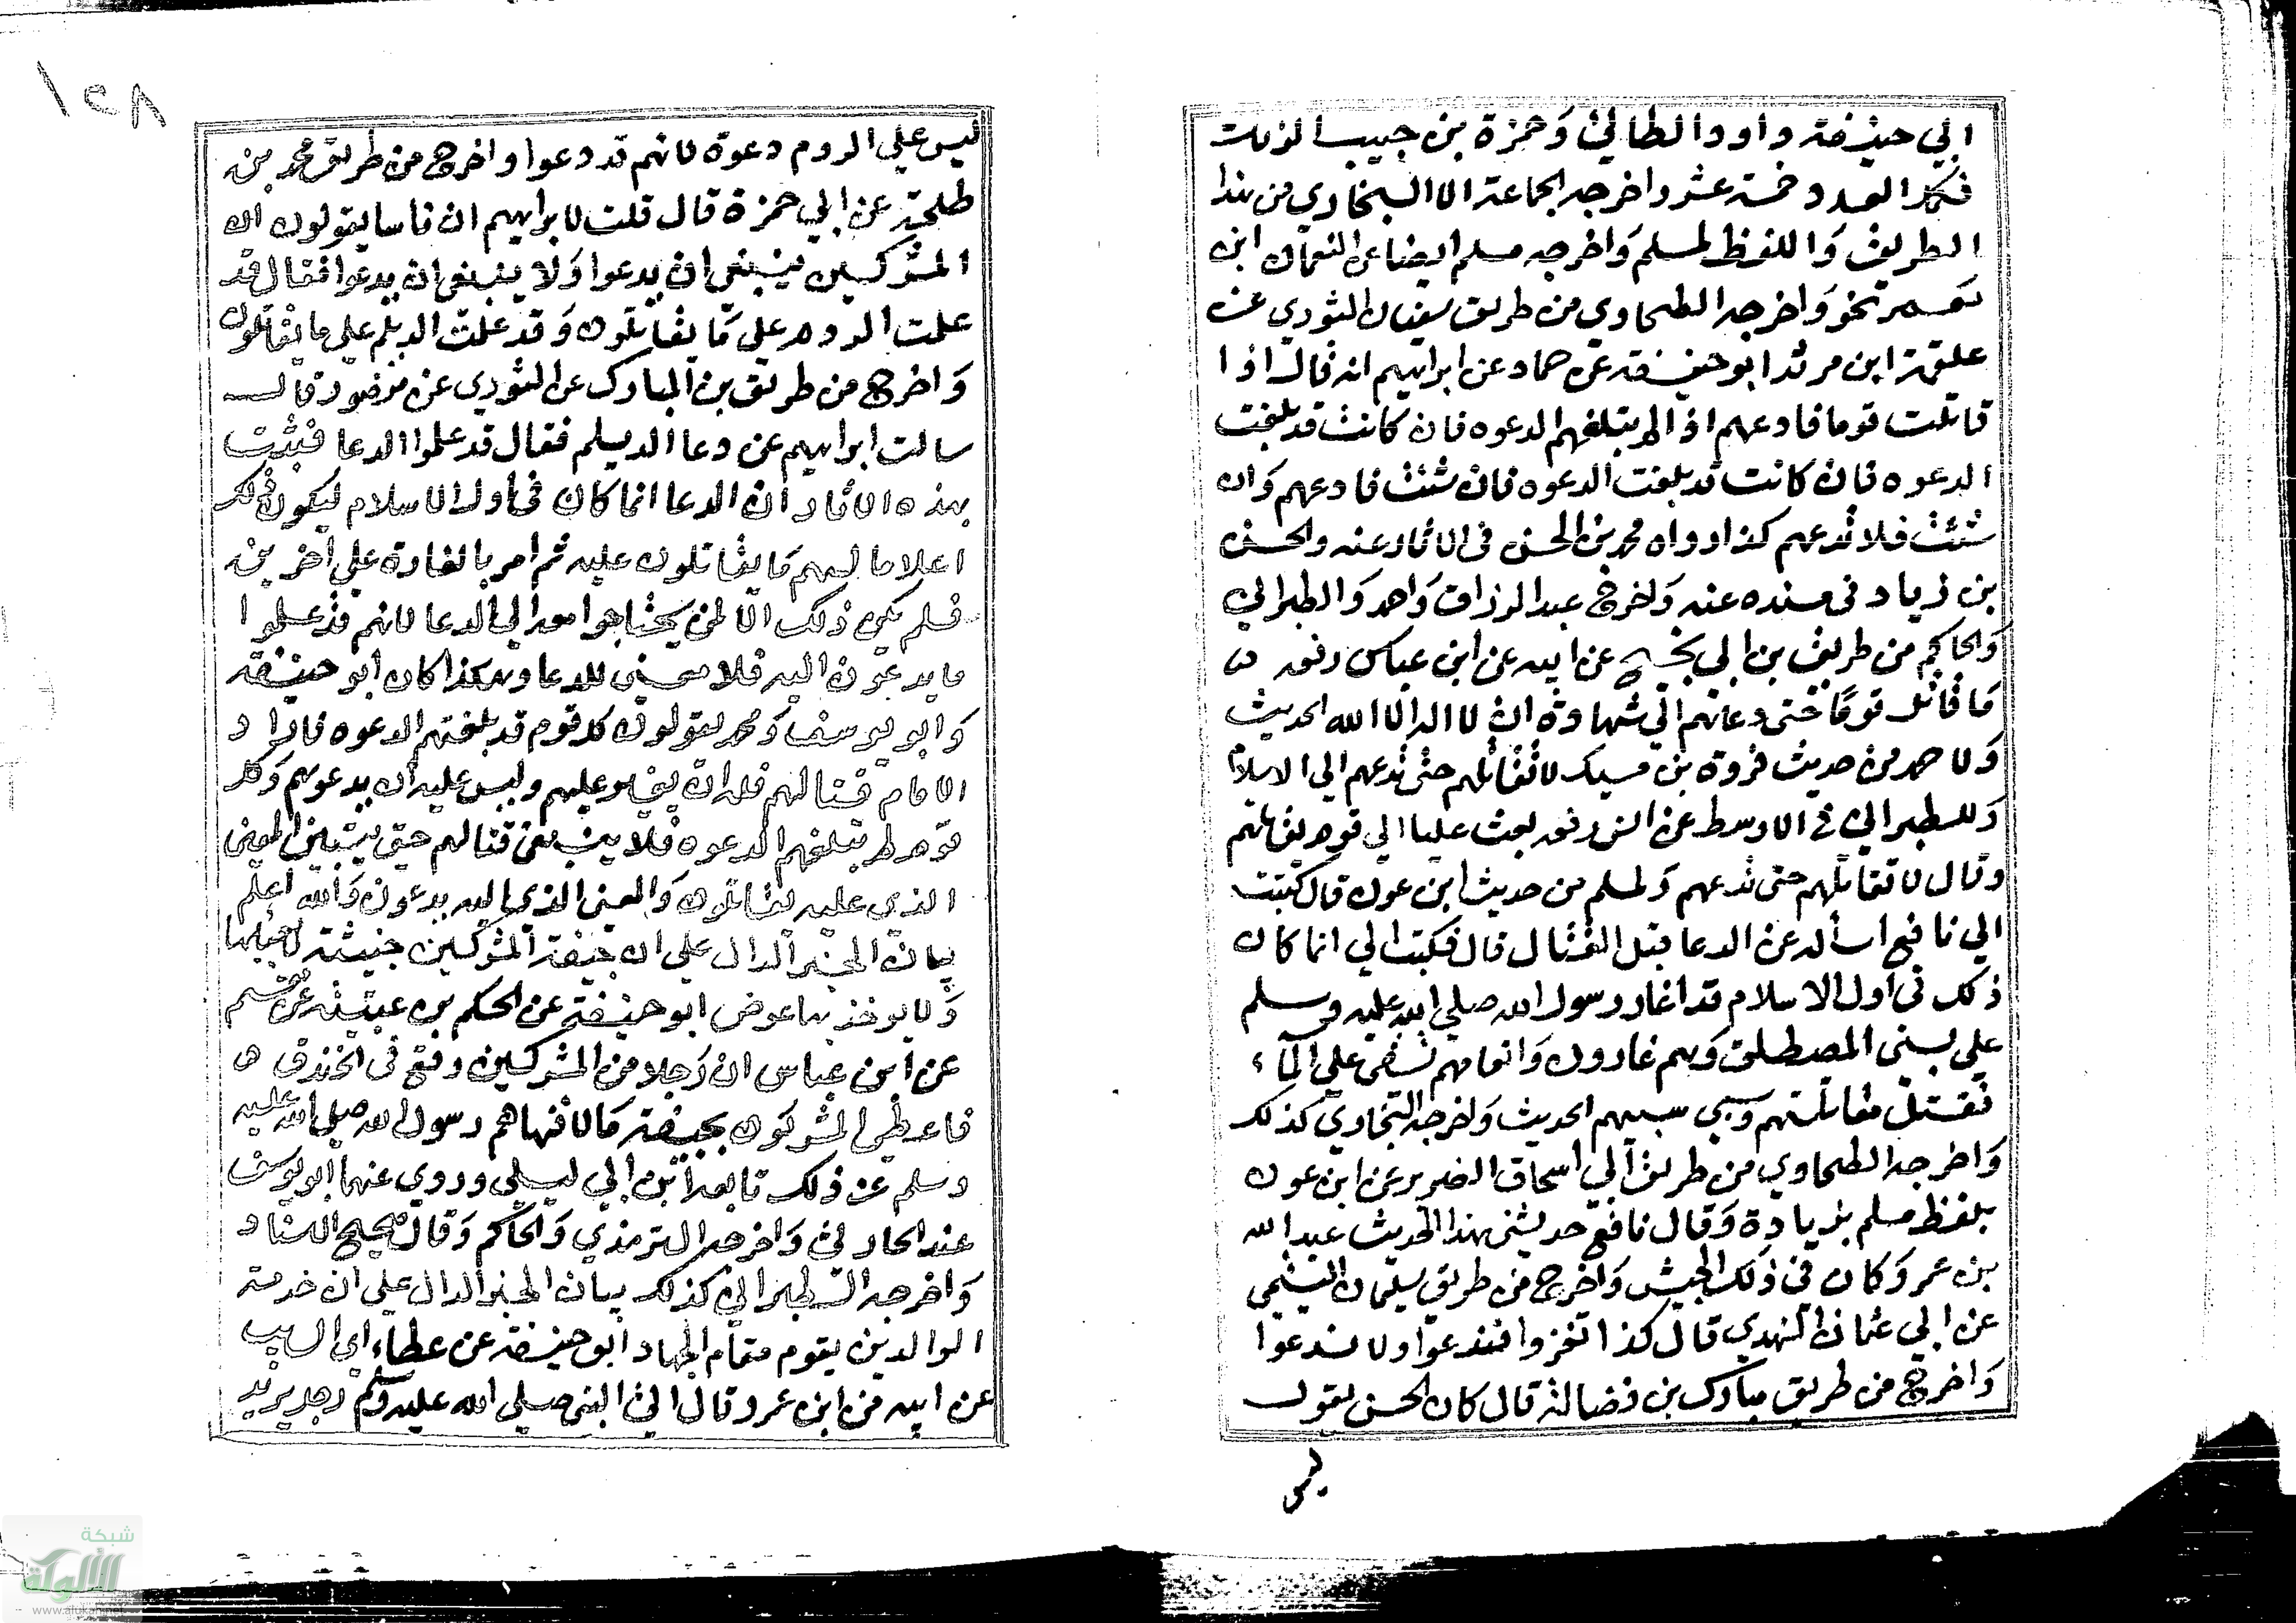 ابي حنيفة داود الطائي وحمزة بن حبيب الزيات
فكمل العدد خمسة عشر واخرجه الجماعة الا البخاري من هذا
الطريق واللفظ لمسلم واخرجه مسلم ايضا عن النعمان ابن
نحو واخرجه الطحاوي من طريق سفيان الثوري عن
علقمة ابن مرثد ابو حنيفة عن حماد عن ابراهيم انه قال اذا
قاتلت قوما فادعهم اذا لم تبلغهم الدعوه فان كانت قد بلغت
الدعوه فان كانت قد بلغت الدعوه فان شئت فادعهم وان
شئت فلا تدعهم كذا رواه محمد بن الحسن في الاثار عنه والحسن
بن زياد في مسنده عنه واخرج عبد الرزاق واحمد والطبراني
والحاكم من طريق بن ابي نجيح عن ابيه عن ابن عباس رفعه
ما قاتل قوما حتى دعاهم الي شهادة ان لا اله الا الله الحديث
ولاحمد من حديث فروة بن مسيك لا تقاتلهم حتى تدعهم الي الاسلام
وللطبراني في الاوسط عن انس رفعه بعث عليا الي قوم يقاتلهم
وقال لا تقاتلهم حتى تدعهم ولمسلم من حديث ابن عون قال كتبت
الي نافع اسأله عن الدعا قبل القتال قال فكتب الي انما كان
ذلك في اول الاسلام قد اغار رسول الله صلي الله عليه وسلم
علي بني المصطلق وهم غارون وانعامهم تسقى علي الماء
فقتل مقاتلتهم وسبي سبيهم الحديث واخرجه البخاري كذلك
واخرجه الطحاوي من طريق ابي اسحاق الضرير عن ابن عون
بلفظ مسلم بزيادة وقال نافع حدثني هذا الحديث عبد الله
بن عمر وكان في ذلك الجيش واخرج من طريق سليمان التيمي
عن ابي عثمان النهدي قال كنا نغزوا فندعوا ولا ندعوا
واخرج من طريق مبارك بن فضالة قال كان الحسن يقول
ليس
١٢٨
ليس علي الروم دعوة لانهم قد دعوا واخرج من طريق محمد بن
طلحة عن ابي حمزة قال قلت لابراهيم ان ناسا يقولون ان
المشركين ينبغي ان يدعوا ولا ينبغي ان يدعوا فقال قد
علمت الروم علي ما يقاتلون وقد علمت الديلم علي ما يقاتلون
واخرج من طريق بن المبارك عن الثوري عن منصور قال
سالت ابراهيم عن دعا الديلم فقال قد علموا الدعا فثبت
بهذه الاثار ان الدعا انما كان في اول الاسلام ليكون ذلك
اعلاما لهم ما يقاتلون عليه ثم امر بالغارة علي اخرين
فلم يكن ذلك الا لمن يحتاجوا معه الي الدعا لانهم قد علموا
ما يدعون اليه فلا معنى للدعا وهكذا كان ابو حنيفة
وابو يوسف ومحمد يقولون كل قوم قد بلغتهم الدعوه فاراد
الامام قتالهم فله ان يغير عليهم وليس عليه ان يدعوهم وكل
قوم لم تبلغهم الدعوه فلا ينبغي قتالهم حتى يتبين المعنى
الذي عليه يقاتلون والمعنى الذي اليه يدعون والله اعلم
بيان الخبر الدال علي ان جيفة المشركين خبيثة
ولا يوخذ بها عوض ابو حنيفة عن الحكم بن عتيبة عن مقسم
عن ابن عباس ان رجلا من المشركين وقع في الخندق
فاعطي المشركون بجيفته مالا فنهاهم رسول الله صلي الله عليه
وسلم عن ذلك تابعه ابن ابي ليلي وروي عنهما ابو يوسف
عند الحارثي واخرجه الترمذي والحاكم وقال صحيح الاسناد
واخرجه الطبراني كذلك بيان الخبر الدال علي ان خدمة
الوالدين يقوم مقام الجهاد ابو حنيفة عن عطاء ابي السايب
عن ابيه عن ابن عمرو قال اتي النبي صلي الله عليه وسلم رجل يريد
شبكة
الألوكة
www.alukah.net